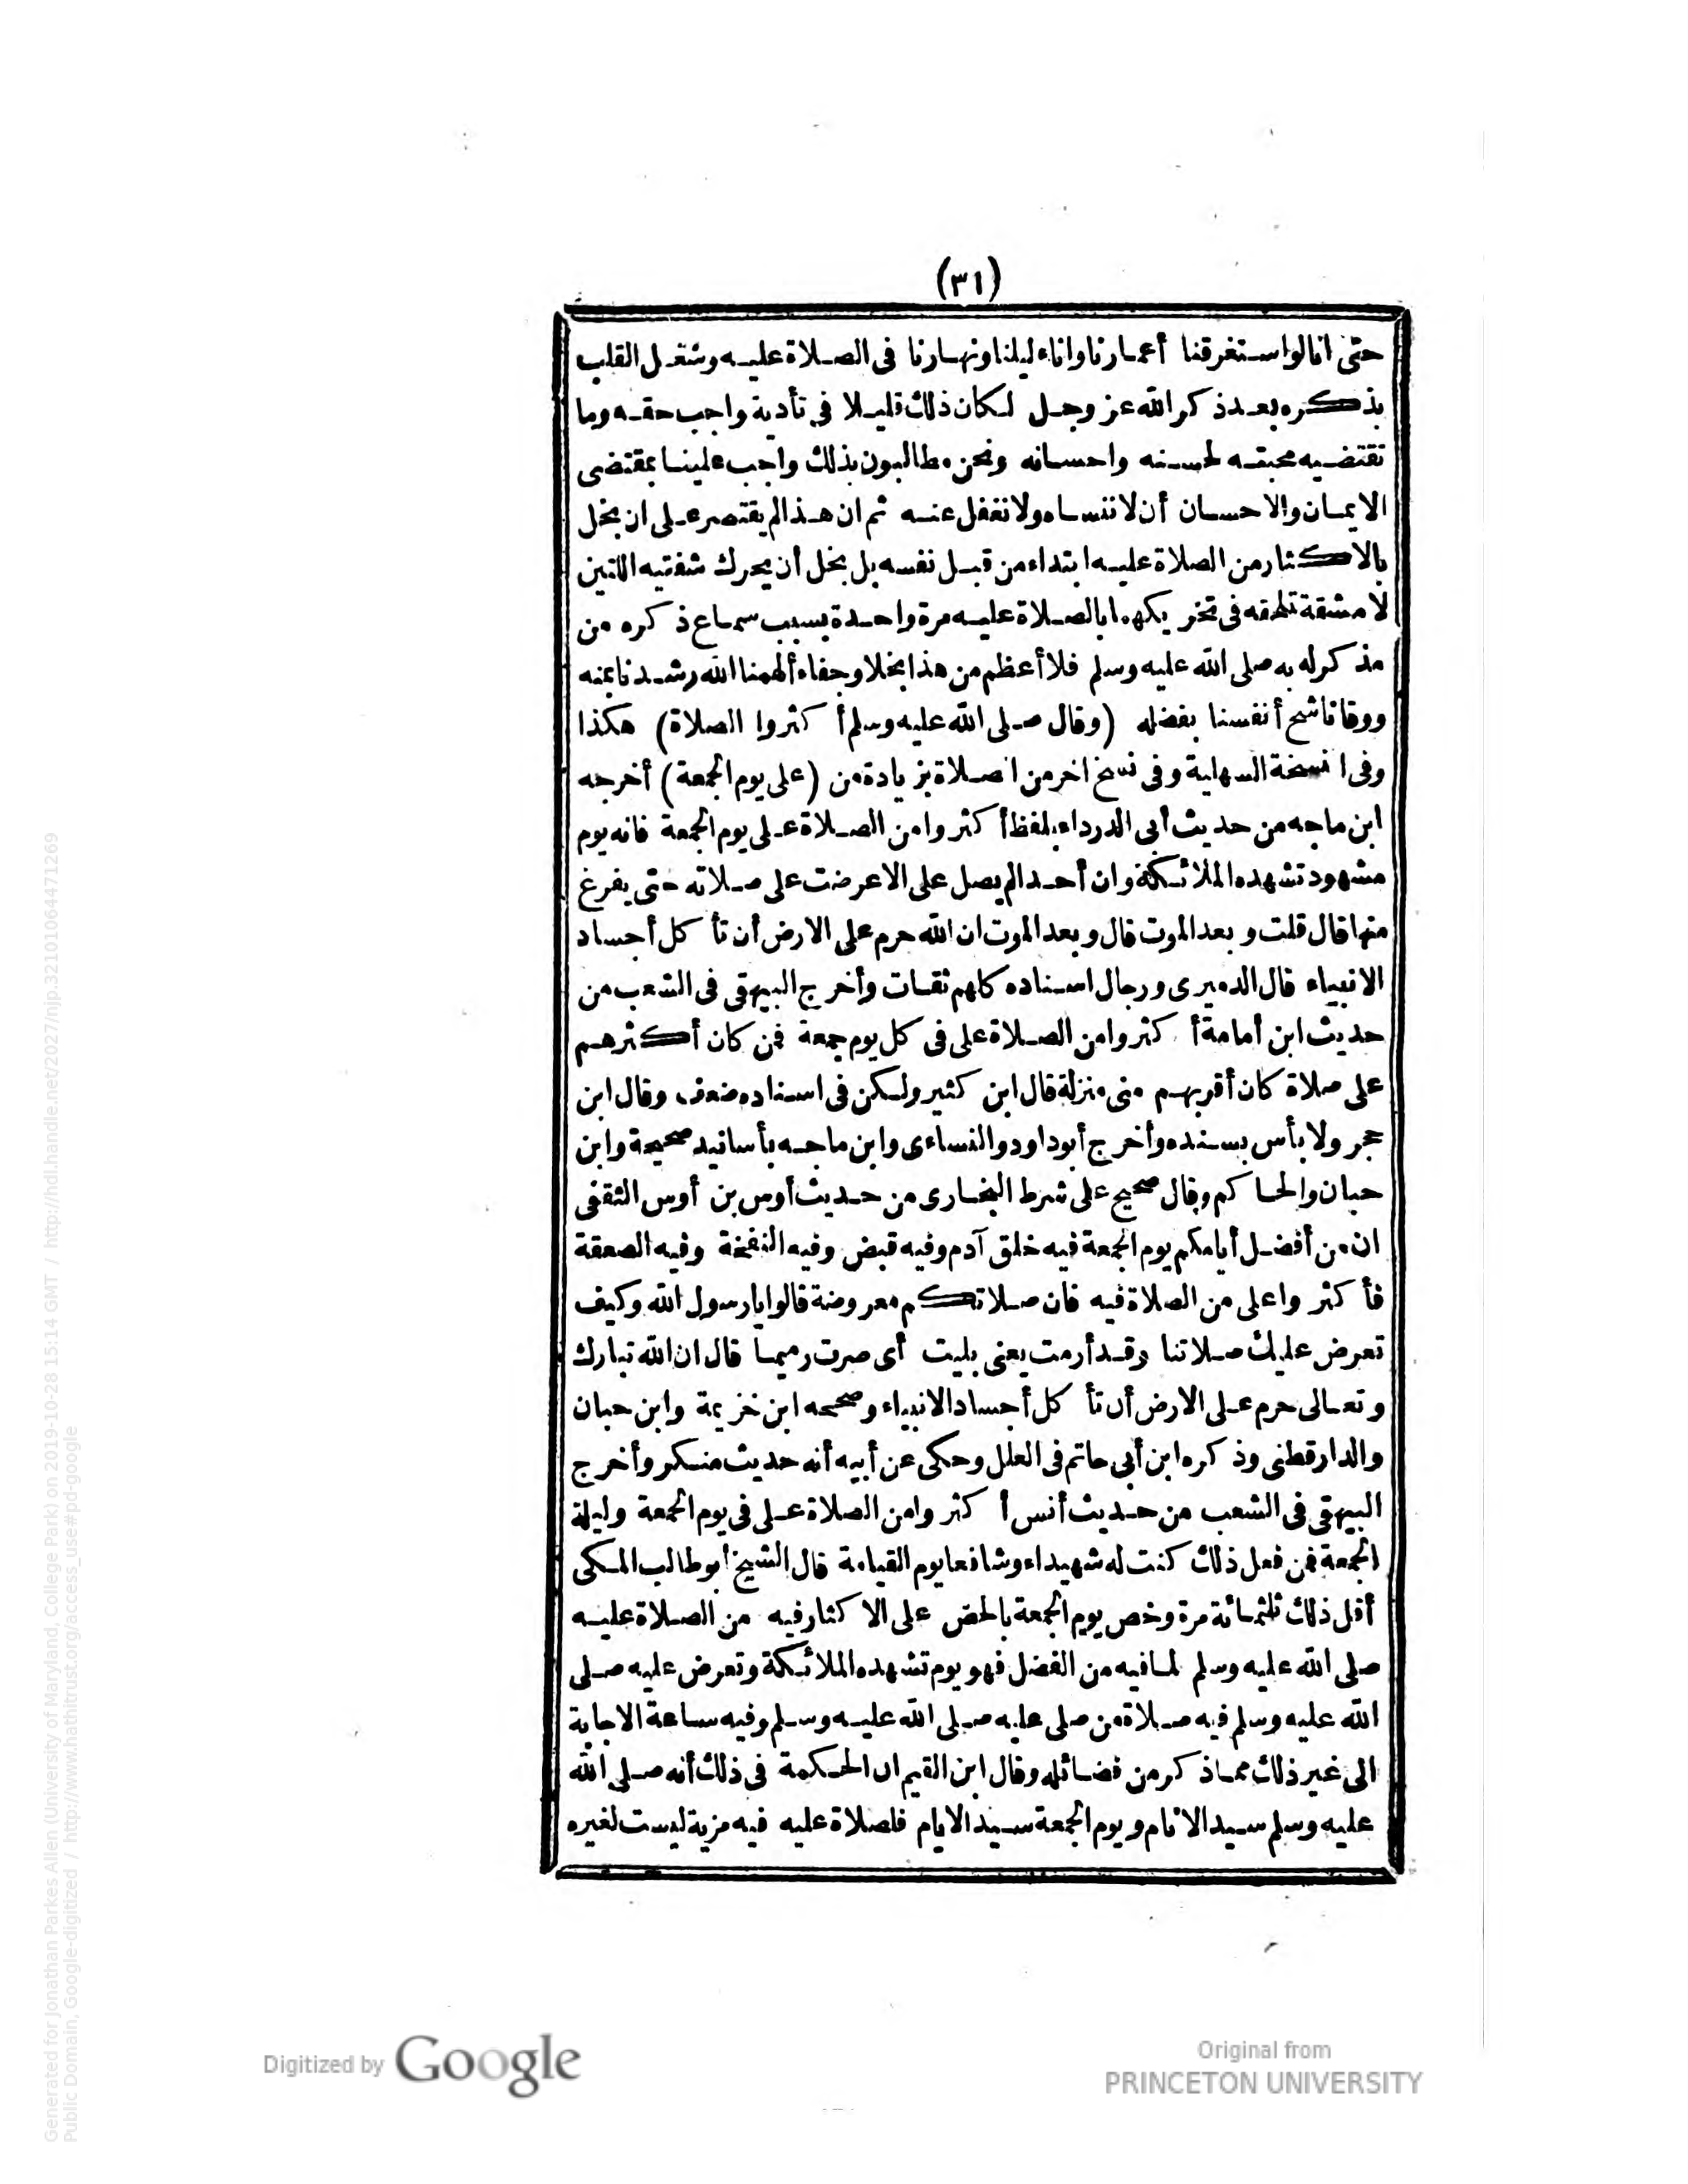 (٣١)
حتى انا لو استغرقنا أعمارنا واناء ليلنا ونهارنا فى الصلاة عليه وشغل القلب
بذكره بعد ذكر الله عز وجل لكان ذلك قليلا فى تأدية واجب حقه وما
تقتضيه محبته لحسنه واحسانه ونحن مطالبون بذلك واجب علينا بمقتضى
الايمان والاحسان أن لا ننساه ولا نغفل عنه ثم ان هذا لم يقتصر على ان بخل
بالاكثار من الصلاة عليه ابتداء من قبل نفسه بل بخل أن يحرك شفتيه اللتين
لا مشقة تلحقه فى تحريكهما بالصلاة عليه مرة واحدة بسبب سماع ذكره من
مذكر له به صلى الله عليه وسلم فلا أعظم من هذا بخلا وجفاء ألهمنا الله رشدنا بمنه
ووقانا شح أنفسنا بفضله (وقال صلى الله عليه وسلم أكثروا الصلاة) هكذا
وفى النسخة السهلية وفى نسخ اخر من الصلاة بزيادة من (على يوم الجمعة) أخرجه
ابن ماجه من حديث أبى الدرداء بلفظ أكثروا من الصلاة على يوم الجمعة فانه يوم
مشهود تشهده الملائكة وان أحدا لم يصل على الا عرضت على صلاته حتى يفرغ
منها قال قلت وبعد الموت قال وبعد الموت ان الله حرم على الارض أن تأكل أجساد
الانبياء قال الدميرى ورجال اسناده كلهم ثقات وأخرج البيهقى فى الشعب من
حديث ابن أمامة أكثروا من الصلاة على فى كل يوم جمعة فمن كان أكثرهم
على صلاة كان أقربهم منى منزلة قال ابن كثير ولكن فى اسناده ضعف وقال ابن
حجر ولا بأس بسنده وأخرج أبو داود والنساءى وابن ماجه بأسانيد صحيحة وابن
حبان والحاكم وقال صحيح على شرط البخارى من حديث أوس بن أوس الثقفى
ان من أفضل أيامكم يوم الجمعة فيه خلق آدم وفيه قبض وفيه النفخة وفيه الصعقة
فأكثروا على من الصلاة فيه فان صلاتكم معروضة قالوا يا رسول الله وكيف
تعرض عليك صلاتنا وقد أرمت يعنى بليت أى صرت رميما قال ان الله تبارك
وتعالى حرم على الارض أن تأكل أجساد الانبياء وصححه ابن خزيمة وابن حبان
والدارقطنى وذكره ابن أبى حاتم فى العلل وحكى عن أبيه أنه حديث منكر وأخرج
البيهقى فى الشعب من حديث أنس أكثروا من الصلاة على فى يوم الجمعة وليلة
الجمعة فمن فعل ذلك كنت له شهيداء وشافعا يوم القيامة قال الشيخ أبو طالب المكى
أقل ذلك ثلثمائة مرة وخص يوم الجمعة بالحض على الاكثار فيه من الصلاة عليه
صلى الله عليه وسلم لما فيه من الفضل فهو يوم تشهده الملائكة وتعرض عليه صلى
الله عليه وسلم فيه صلاة من صلى عليه صلى الله عليه وسلم وفيه ساعة الاجابة
الى غير ذلك مما ذكر من فضائله وقال ابن القيم ان الحكمة فى ذلك أنه صلى الله
عليه وسلم سيد الانام ويوم الجمعة سيد الايام فلصلاة عليه فيه مزية ليست لغيره
Digitized by Google
Original from
PRINCETON UNIVERSITY
Generated for Jonathan Parkes Allen (University of Maryland, College Park) on 2019-10-28 15:14 GMT / http://hdl.handle.net/2027/njp.32101064471269
Public Domain, Google-digitized / http://www.hathitrust.org/access_use#pd-google